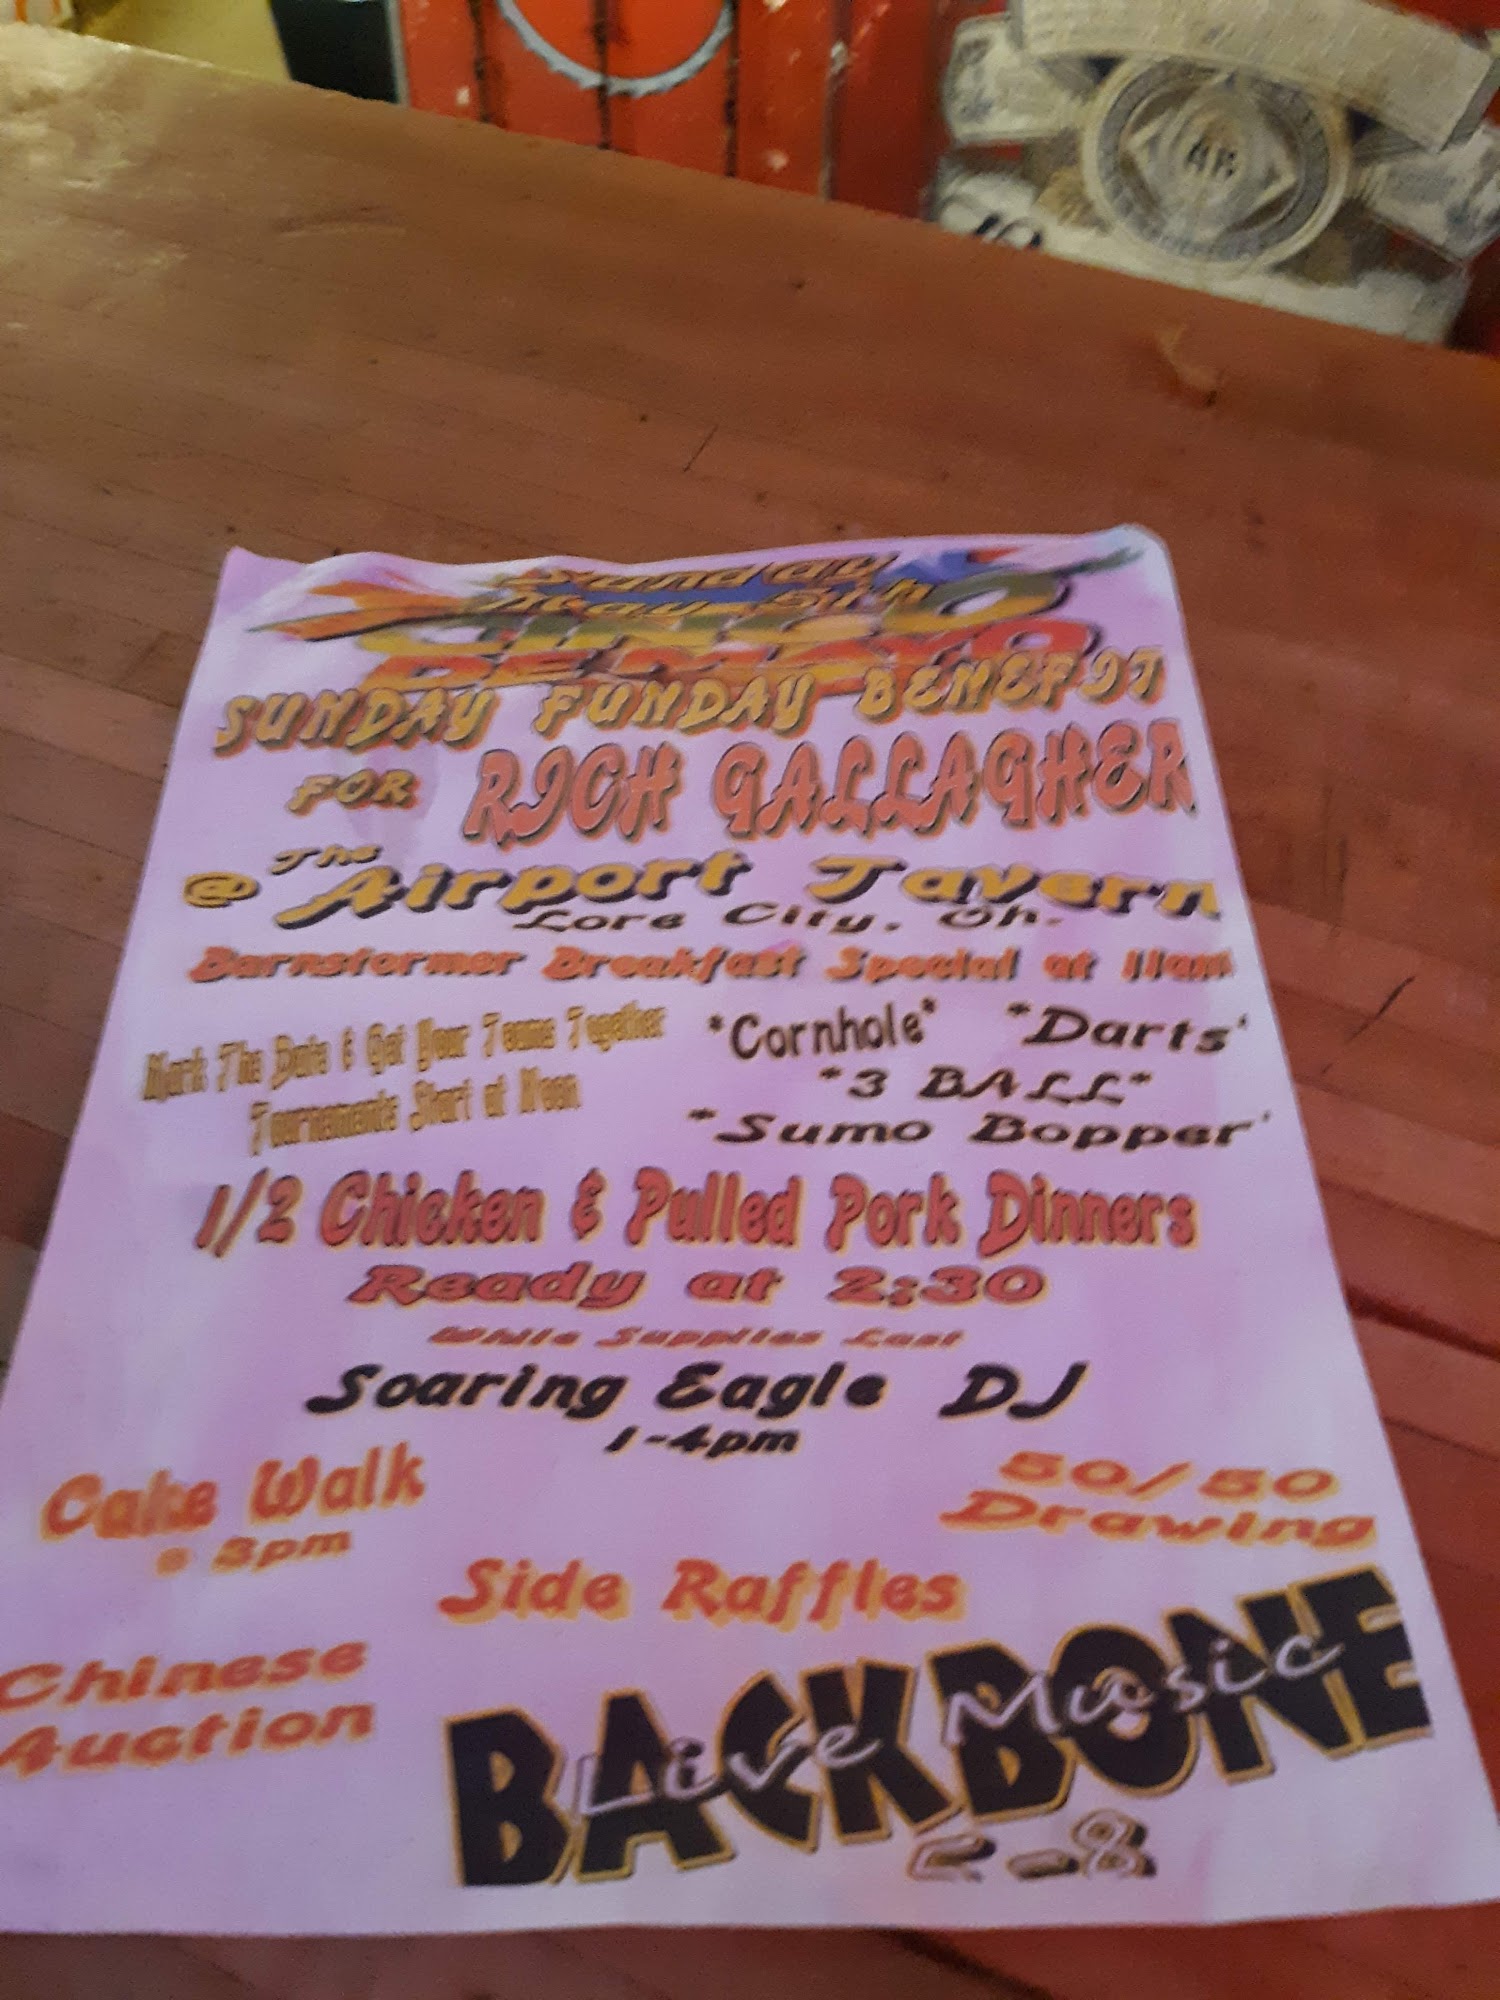 Sunday
May 5th
CINCO
DE MAYO
SUNDAY FUNDAY BENEFIT
FOR RICH GALLAGHER
@ The Airport Tavern
Lore City, Oh.
Barnstormer Breakfast Special at 11am
Mark The Date & Get Your Teams Together
Tournaments Start at Noon
*Cornhole* *Darts*
*3 BALL*
*Sumo Bopper*
1/2 Chicken & Pulled Pork Dinners
Ready at 2:30
While Supplies Last
Soaring Eagle DJ
1-4pm
Cake Walk
@ 3pm
50/50
Drawing
Side Raffles
Chinese
Auction
BACKBONE
Live Music
-8